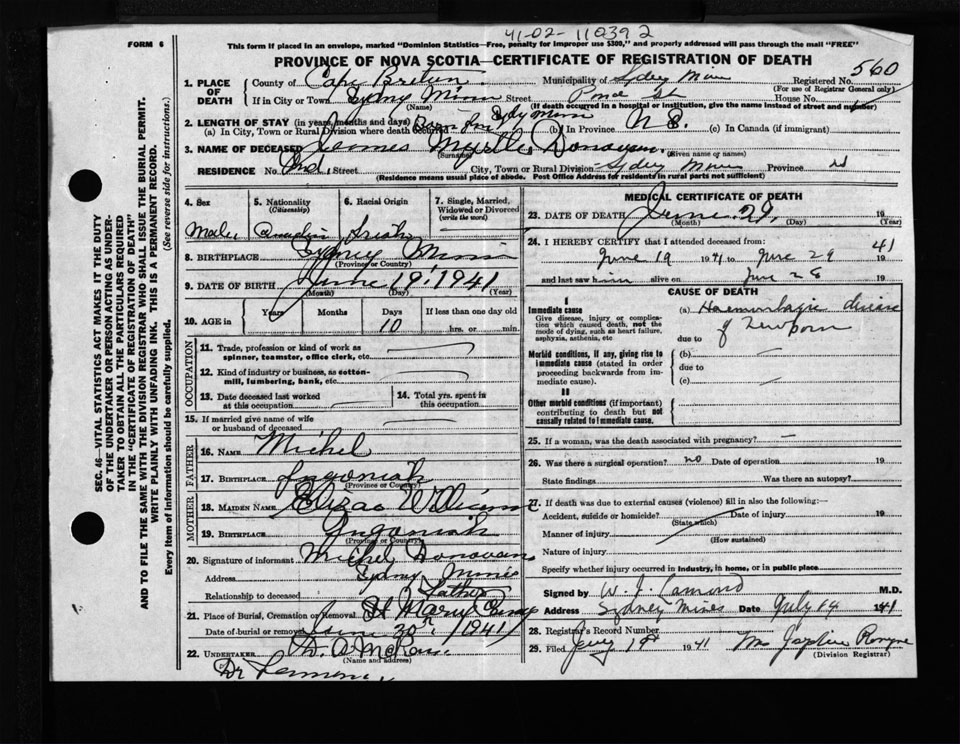 41-02-110392
FORM 6
This form if placed in an envelope, marked "Dominion Statistics—Free, penalty for improper use $300," and properly addressed will pass through the mail "FREE"
PROVINCE OF NOVA SCOTIA—CERTIFICATE OF REGISTRATION OF DEATH
560
1. PLACE OF DEATH
County of Cape Breton Municipality of Sydney Mines Registered No.
(For use of Registrar General only)
If in City or Town Sydney Mines Street House No.
(Name) (If death occurred in a hospital or institution, give the name instead of street and number)
2. LENGTH OF STAY (in years, months and days)
(a) In City, Town or Rural Division where death occurred Born in Sydney Mines (b) In Province N S. (c) In Canada (if immigrant)
3. NAME OF DECEASED James Donovan.
(Surname) (Given name or names)
RESIDENCE No. Street City, Town or Rural Division Sydney Mines Province
(Residence means usual place of abode. Post Office Address for residents in rural parts not sufficient)
4. Sex
Male
5. Nationality
(Citizenship)
Canadian
6. Racial Origin
Irish
7. Single, Married, Widowed or Divorced
(write the word)
8. BIRTHPLACE Sydney Mines
(Province or Country)
9. DATE OF BIRTH June 19, 1941
(Month) (Day) (Year)
10. AGE in
Years
Months
Days
10
If less than one day old
hrs. or min.
OCCUPATION
11. Trade, profession or kind of work as spinner, teamster, office clerk, etc.
12. Kind of industry or business, as cotton-mill, lumbering, bank, etc.
13. Date deceased last worked at this occupation
14. Total yrs. spent in this occupation
15. If married give name of wife or husband of deceased
FATHER
16. NAME Michel
17. BIRTHPLACE Ingonish
(Province or Country)
MOTHER
18. MAIDEN NAME Williams
19. BIRTHPLACE Ingonish
(Province or Country)
20. Signature of informant Michel Donovan
Address Sydney Mines
Relationship to deceased Father
21. Place of Burial, Cremation or Removal
Date of burial or removal June 30th 1941
22. UNDERTAKER
(Name and address)
MEDICAL CERTIFICATE OF DEATH
23. DATE OF DEATH June 29, 19
(Month) (Day) (Year)
24. I HEREBY CERTIFY that I attended deceased from:
June 19 1941 to June 29 1941
and last saw him alive on June 28 19
CAUSE OF DEATH
I
Immediate cause
Give disease, injury or complication which caused death, not the mode of dying, such as heart failure, asphyxia, asthenia, etc
(a) Haemorrhagic disease of newborn
due to
Morbid conditions, if any, giving rise to immediate cause (stated in order proceeding backwards from immediate cause).
(b)
due to
(c)
II
Other morbid conditions (if important) contributing to death but not causally related to immediate cause.
25. If a woman, was the death associated with pregnancy?
26. Was there a surgical operation? no Date of operation 19
State findings Was there an autopsy?
27. If death was due to external causes (violence) fill in also the following:—
Accident, suicide or homicide? Date of injury 19
(State which)
Manner of injury
(How sustained)
Nature of injury
Specify whether injury occurred in industry, in home, or in public place
Signed by W. J. Lamond M.D.
Address Sydney Mines Date July 14 1941
28. Registrar's Record Number
29. Filed 1941
(Division Registrar)
SEC. 46—VITAL STATISTICS ACT MAKES IT THE DUTY OF THE UNDERTAKER OR PERSON ACTING AS UNDERTAKER TO OBTAIN ALL THE PARTICULARS REQUIRED IN THE "CERTIFICATE OF REGISTRATION OF DEATH" AND TO FILE THE SAME WITH THE DIVISION REGISTRAR WHO SHALL ISSUE THE BURIAL PERMIT.
WRITE PLAINLY WITH UNFADING INK. THIS IS A PERMANENT RECORD.
Every item of information should be carefully supplied. (See reverse side for instructions.)